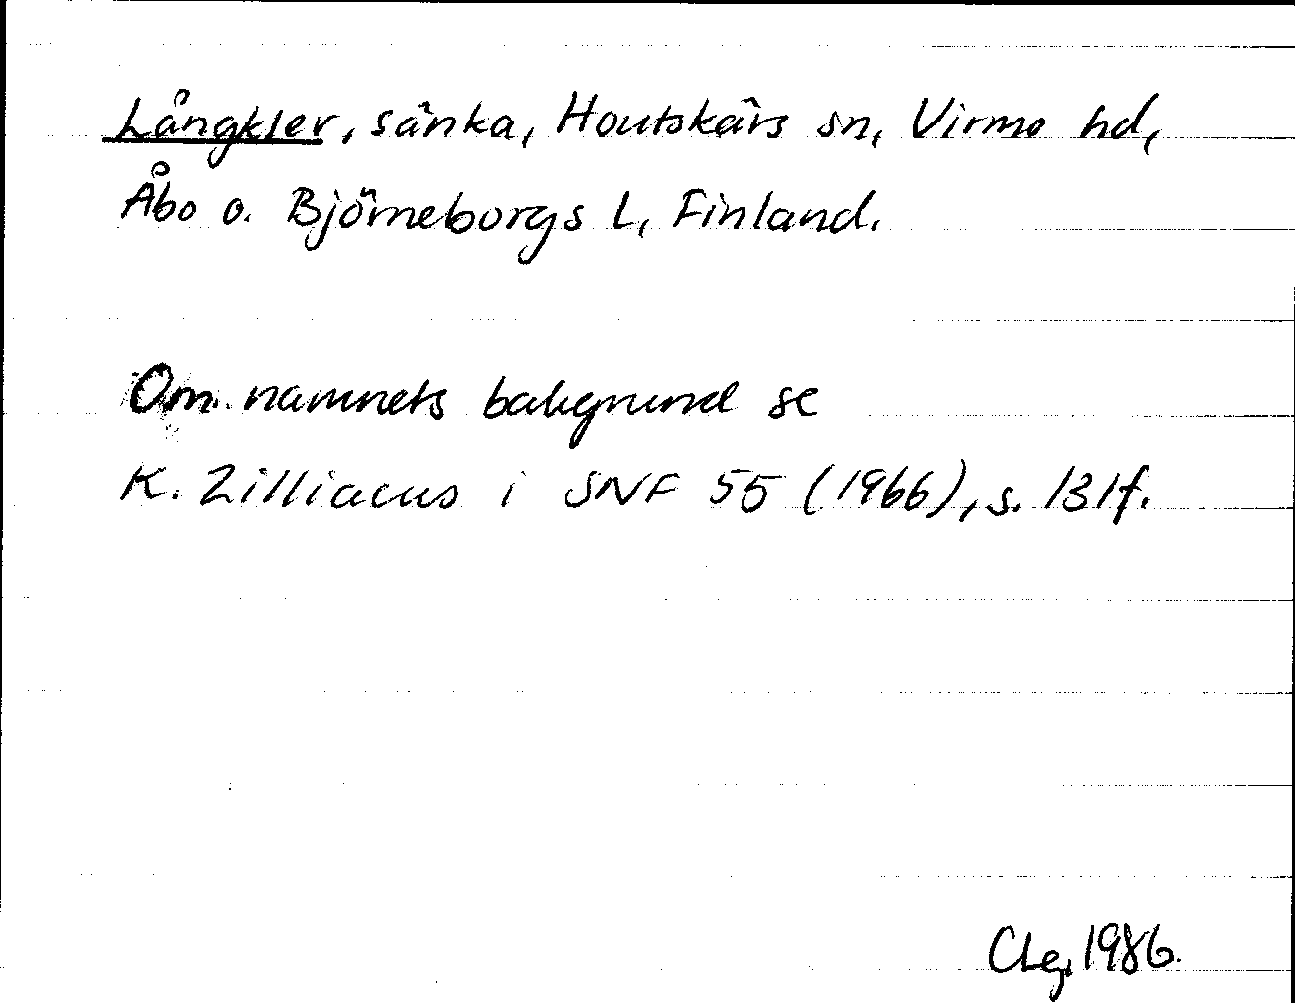 Långkler, sänka, Houtskärs sn, Virmo hd,
Åbo o. Björneborgs L, Finland.
Om namnets bakgrund se
K. Zilliacus i SNF 55 (1966), s. 131f.
CLg, 1986.